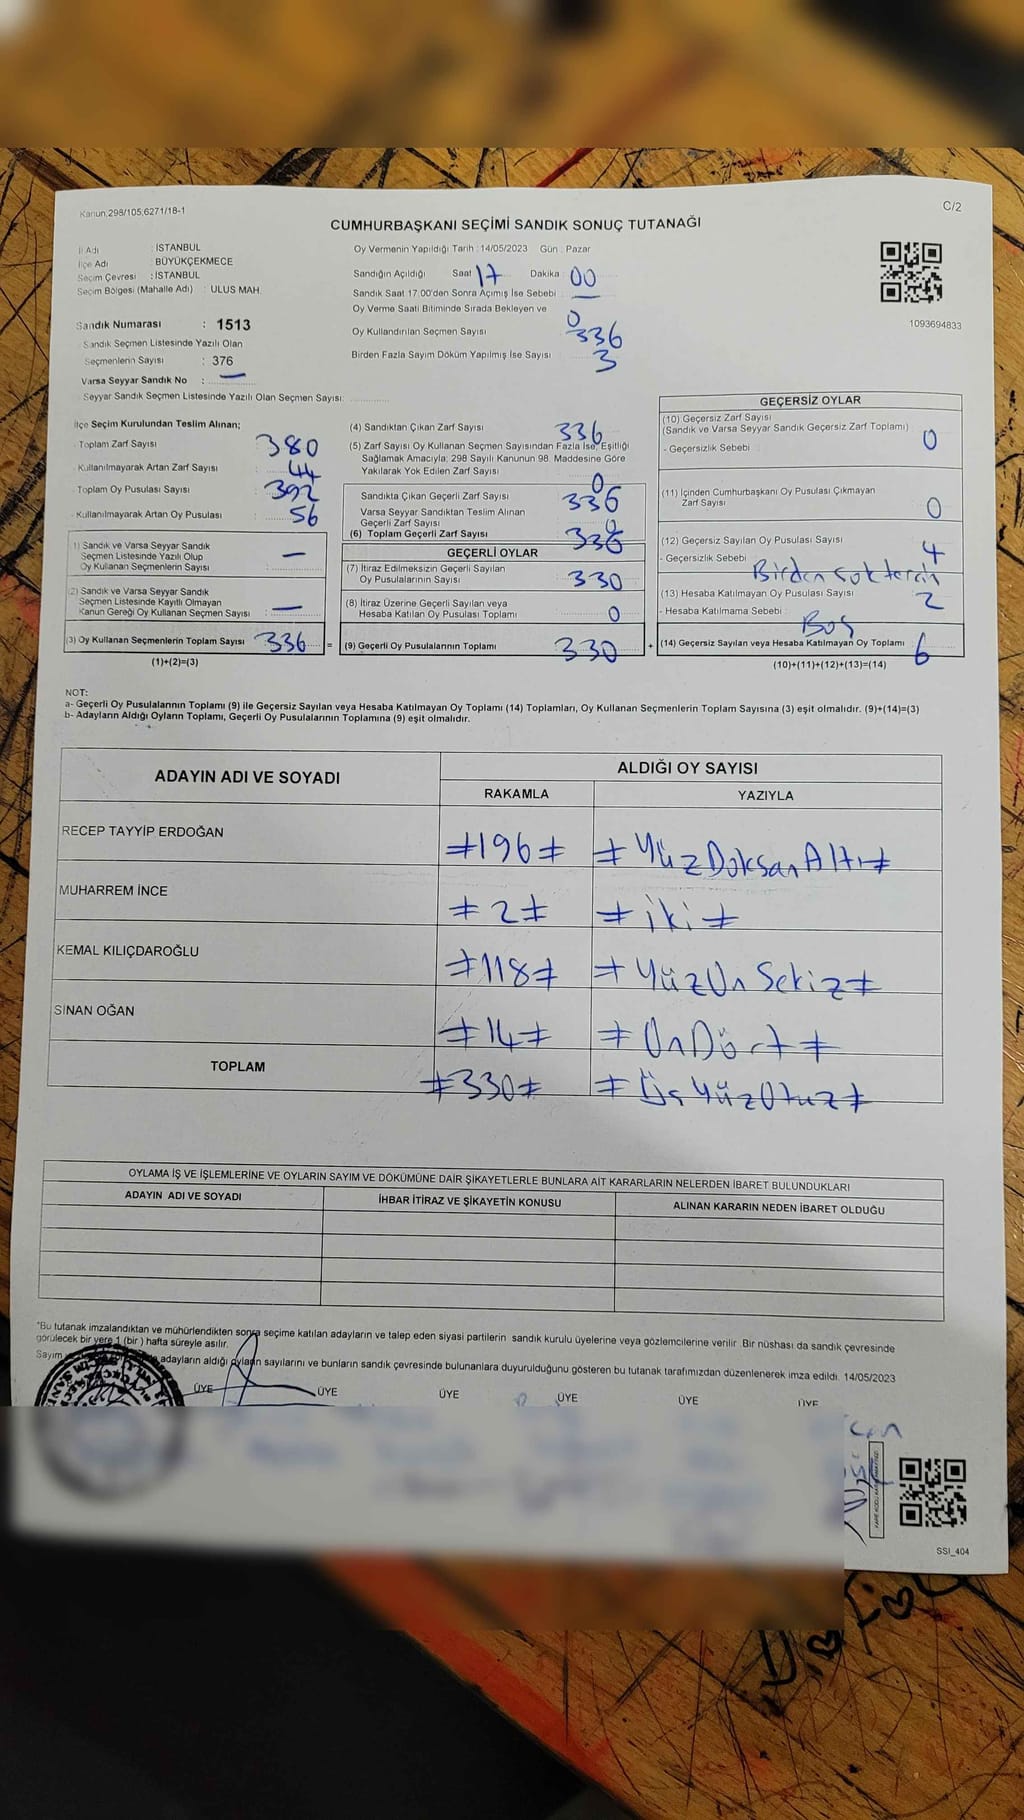 Kanun,298/105,6271/18-1
C/2
CUMHURBAŞKANI SEÇİMİ SANDIK SONUÇ TUTANAĞI
İl Adı : İSTANBUL
İlçe Adı : BÜYÜKÇEKMECE
Seçim Çevresi : İSTANBUL
Seçim Bölgesi (Mahalle Adı) : ULUS MAH.
Sandık Numarası : 1513
Sandık Seçmen Listesinde Yazılı Olan
Seçmenlerin Sayısı : 376
Varsa Seyyar Sandık No : —
Seyyar Sandık Seçmen Listesinde Yazılı Olan Seçmen Sayısı:
Oy Vermenin Yapıldığı Tarih : 14/05/2023 Gün : Pazar
Sandığın Açıldığı Saat 17 Dakika : 00
Sandık Saat 17.00'den Sonra Açımış İse Sebebi : —
Oy Verme Saati Bitiminde Sırada Bekleyen ve
Oy Kullandırılan Seçmen Sayısı 0
336
Birden Fazla Sayım Döküm Yapılmış İse Sayısı 3
1093694833
İlçe Seçim Kurulundan Teslim Alınan;
Toplam Zarf Sayısı 380
Kullanılmayarak Artan Zarf Sayısı 44
Toplam Oy Pusulası Sayısı 392
Kullanılmayarak Artan Oy Pusulası : 56
1) Sandık ve Varsa Seyyar Sandık
Seçmen Listesinde Yazılı Olup
Oy Kullanan Seçmenlerin Sayısı : —
(2) Sandık ve Varsa Seyyar Sandık
Seçmen Listesinde Kayıtlı Olmayan
Kanun Gereği Oy Kullanan Seçmen Sayısı : —
(3) Oy Kullanan Seçmenlerin Toplam Sayısı 336 =
(1)+(2)=(3)
(4) Sandıktan Çıkan Zarf Sayısı 336
(5) Zarf Sayısı Oy Kullanan Seçmen Sayısından Fazla İse, Eşitliği
Sağlamak Amacıyla; 298 Sayılı Kanunun 98. Maddesine Göre
Yakılarak Yok Edilen Zarf Sayısı 0
Sandıkta Çıkan Geçerli Zarf Sayısı 336
Varsa Seyyar Sandıktan Teslim Alınan
Geçerli Zarf Sayısı 0
(6) Toplam Geçerli Zarf Sayısı 336
GEÇERLİ OYLAR
(7) İtiraz Edilmeksizin Geçerli Sayılan
Oy Pusulalarının Sayısı 330
(8) İtiraz Üzerine Geçerli Sayılan veya
Hesaba Katılan Oy Pusulası Toplamı 0
(9) Geçerli Oy Pusulalarının Toplamı 330 +
GEÇERSİZ OYLAR
(10) Geçersiz Zarf Sayısı
(Sandık ve Varsa Seyyar Sandık Geçersiz Zarf Toplamı) 0
- Geçersizlik Sebebi
(11) İçinden Cumhurbaşkanı Oy Pusulası Çıkmayan
Zarf Sayısı 0
(12) Geçersiz Sayılan Oy Pusulası Sayısı 4
- Geçersizlik Sebebi Birden çok tercih
(13) Hesaba Katılmayan Oy Pusulası Sayısı 2
- Hesaba Katılmama Sebebi : Boş
(14) Geçersiz Sayılan veya Hesaba Katılmayan Oy Toplamı 6
(10)+(11)+(12)+(13)=(14)
NOT:
a- Geçerli Oy Pusulalarının Toplamı (9) ile Geçersiz Sayılan veya Hesaba Katılmayan Oy Toplamı (14) Toplamları, Oy Kullanan Seçmenlerin Toplam Sayısına (3) eşit olmalıdır. (9)+(14)=(3)
b- Adayların Aldığı Oyların Toplamı, Geçerli Oy Pusulalarının Toplamına (9) eşit olmalıdır.
ADAYIN ADI VE SOYADI ALDIĞI OY SAYISI
RAKAMLA YAZIYLA
RECEP TAYYİP ERDOĞAN ≠196≠ ≠YüzDoksanAltı≠
MUHARREM İNCE ≠2≠ ≠iki≠
KEMAL KILIÇDAROĞLU ≠118≠ ≠YüzOnSekiz≠
SİNAN OĞAN ≠14≠ ≠OnDört≠
TOPLAM ≠330≠ ≠ÜçYüzOtuz≠
OYLAMA İŞ VE İŞLEMLERİNE VE OYLARIN SAYIM VE DÖKÜMÜNE DAİR ŞİKAYETLERLE BUNLARA AİT KARARLARIN NELERDEN İBARET BULUNDUKLARI
ADAYIN ADI VE SOYADI İHBAR İTİRAZ VE ŞİKAYETİN KONUSU ALINAN KARARIN NEDEN İBARET OLDUĞU
*Bu tutanak imzalandıktan ve mühürlendikten sonra seçime katılan adayların ve talep eden siyasi partilerin sandık kurulu üyelerine veya gözlemcilerine verilir. Bir nüshası da sandık çevresinde
görülecek bir yere 1 (bir) hafta süreyle asılır.
Sayım adayların aldığı oyların sayılarını ve bunların sandık çevresinde bulunanlara duyurulduğunu gösteren bu tutanak tarafımızdan düzenlenerek imza edildi. 14/05/2023
ÜYE ÜYE ÜYE ÜYE ÜYE ÜYE
SSI_404